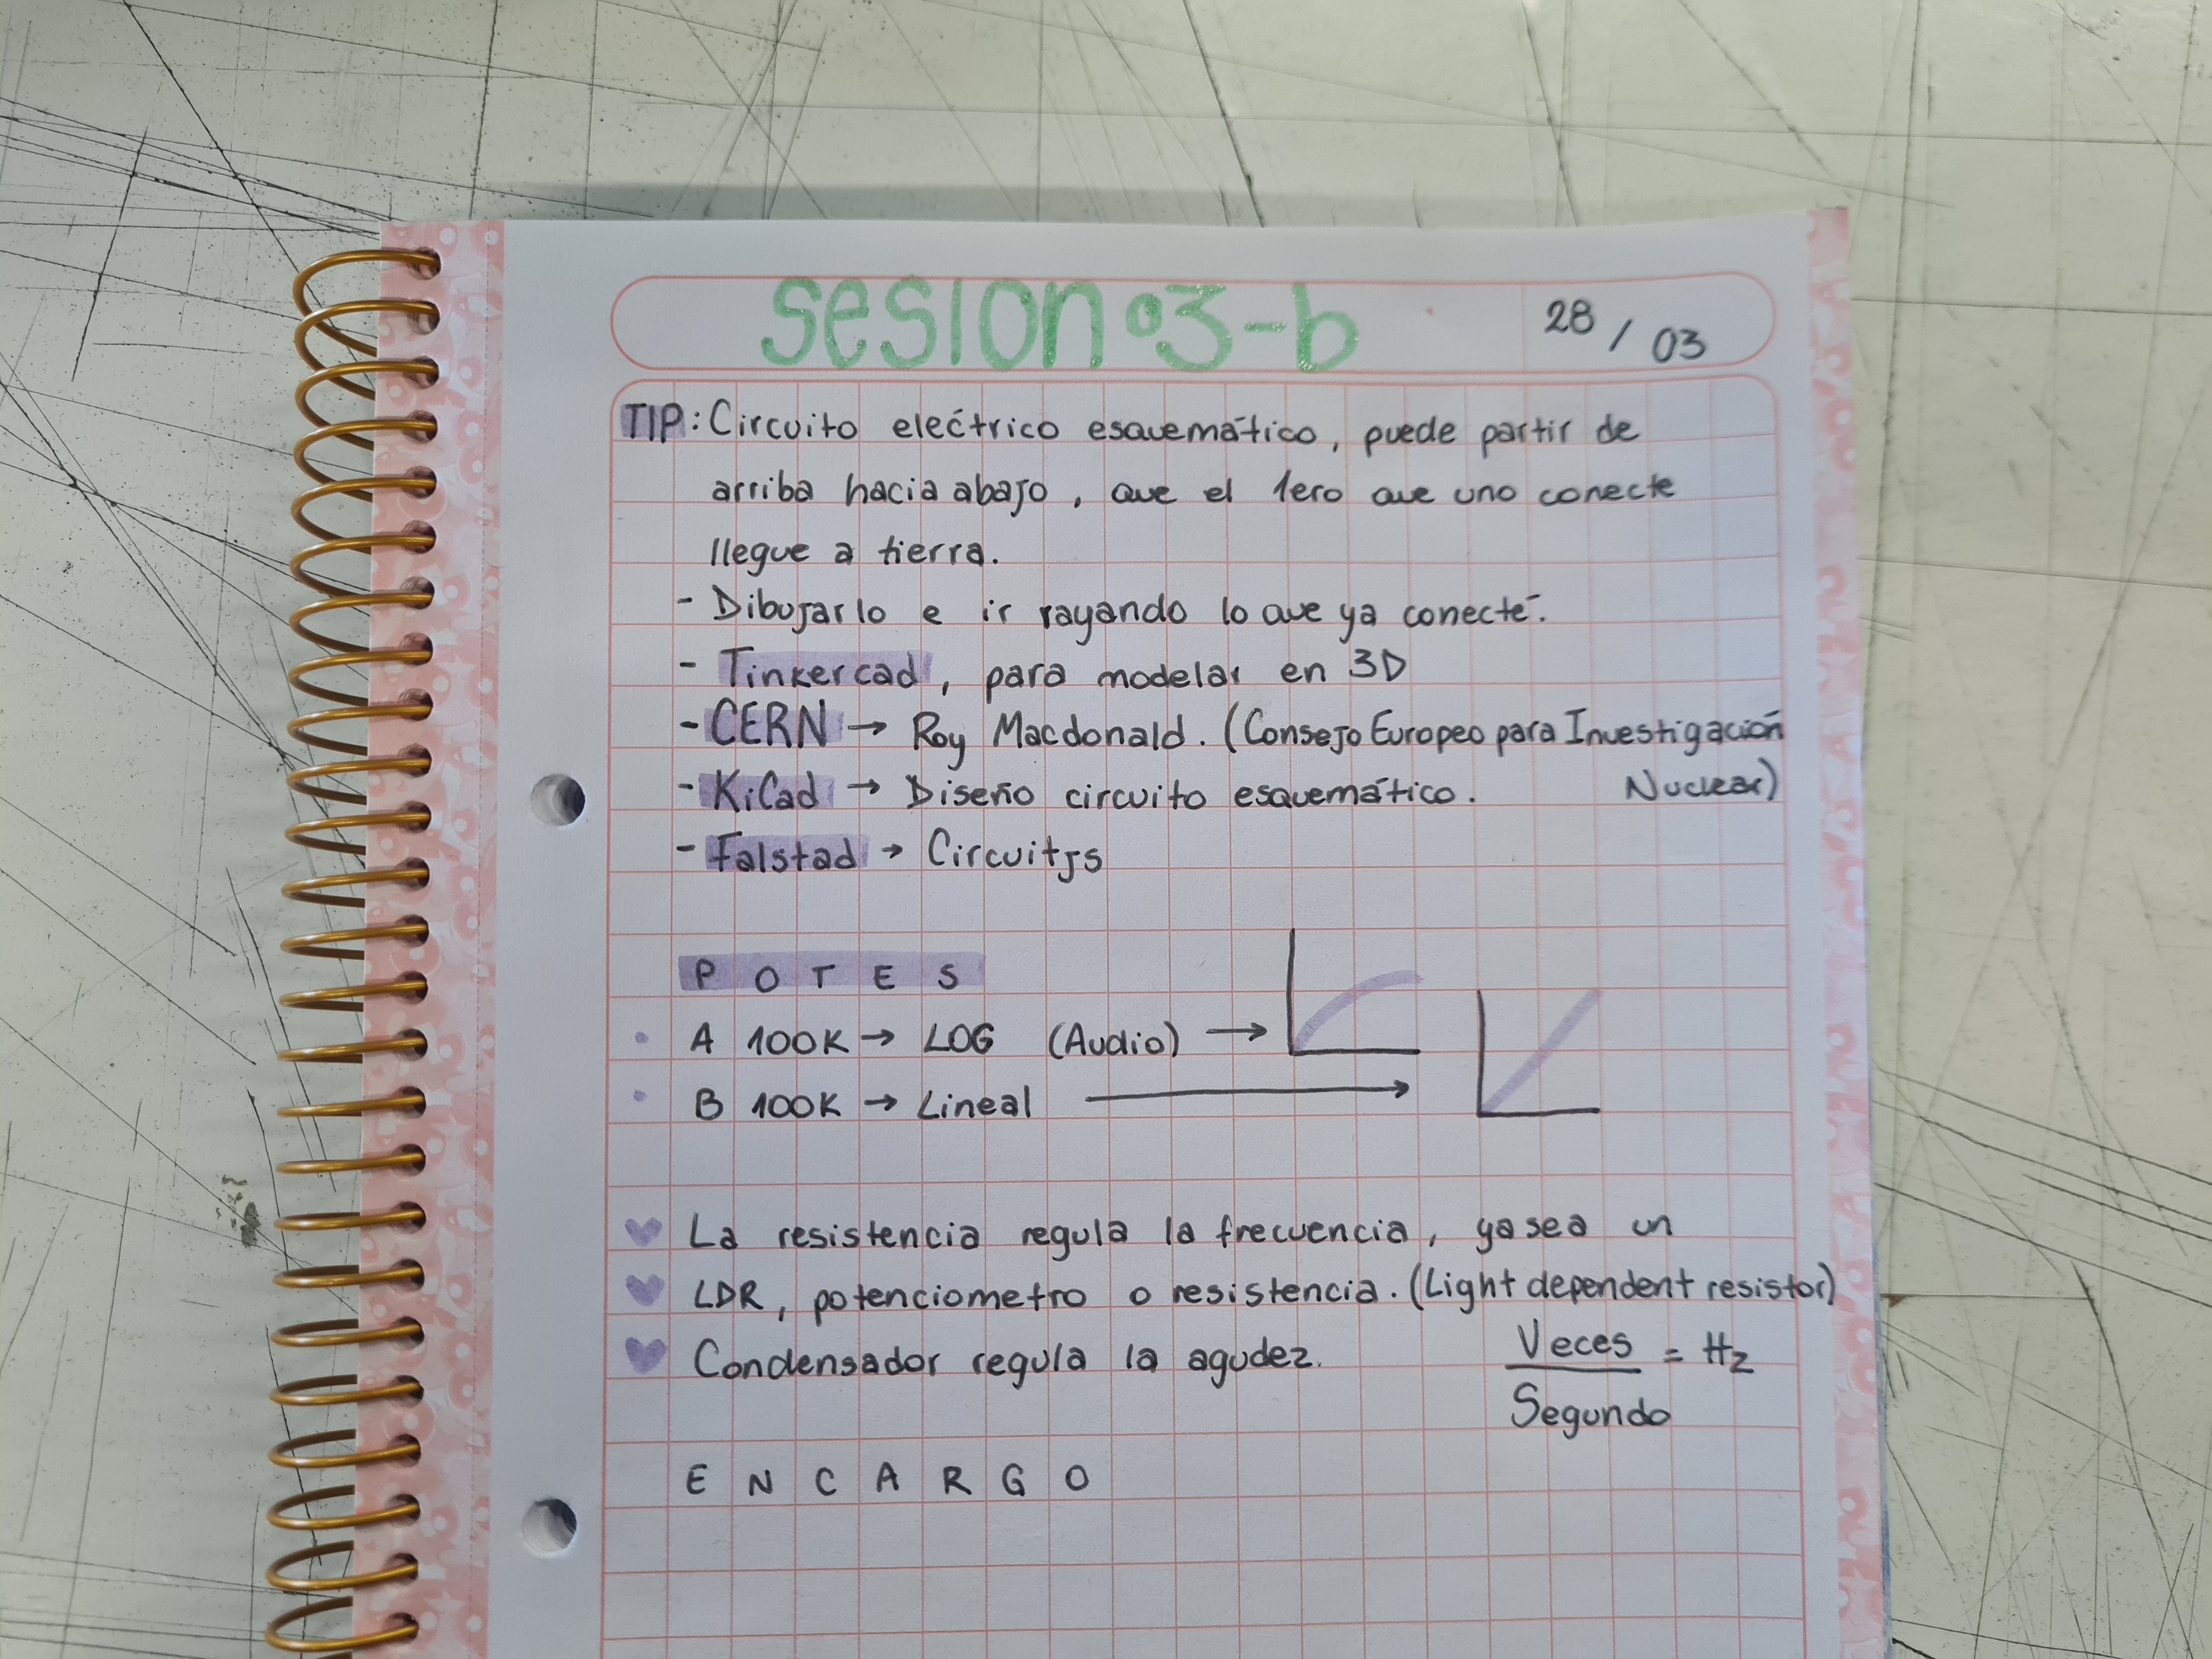 sesion 03-b 28/03
TIP: Circuito eléctrico esquemático, puede partir de
arriba hacia abajo, que el 1ero que uno conecte
llegue a tierra.
- Dibujarlo e ir rayando lo que ya conecté.
- Tinkercad, para modelar en 3D
- CERN → Roy Macdonald. (Consejo Europeo para Investigación
Nuclear)
- KiCad → Diseño circuito esquemático.
- Falstad → Circuitjs
POTES
• A 100K → LOG (Audio) →
• B 100K → Lineal →
♥ La resistencia regula la frecuencia, ya sea un
♥ LDR, potenciometro o resistencia. (Light dependent resistor)
♥ Condensador regula la agudez.
Veces = Hz
Segundo
ENCARGO